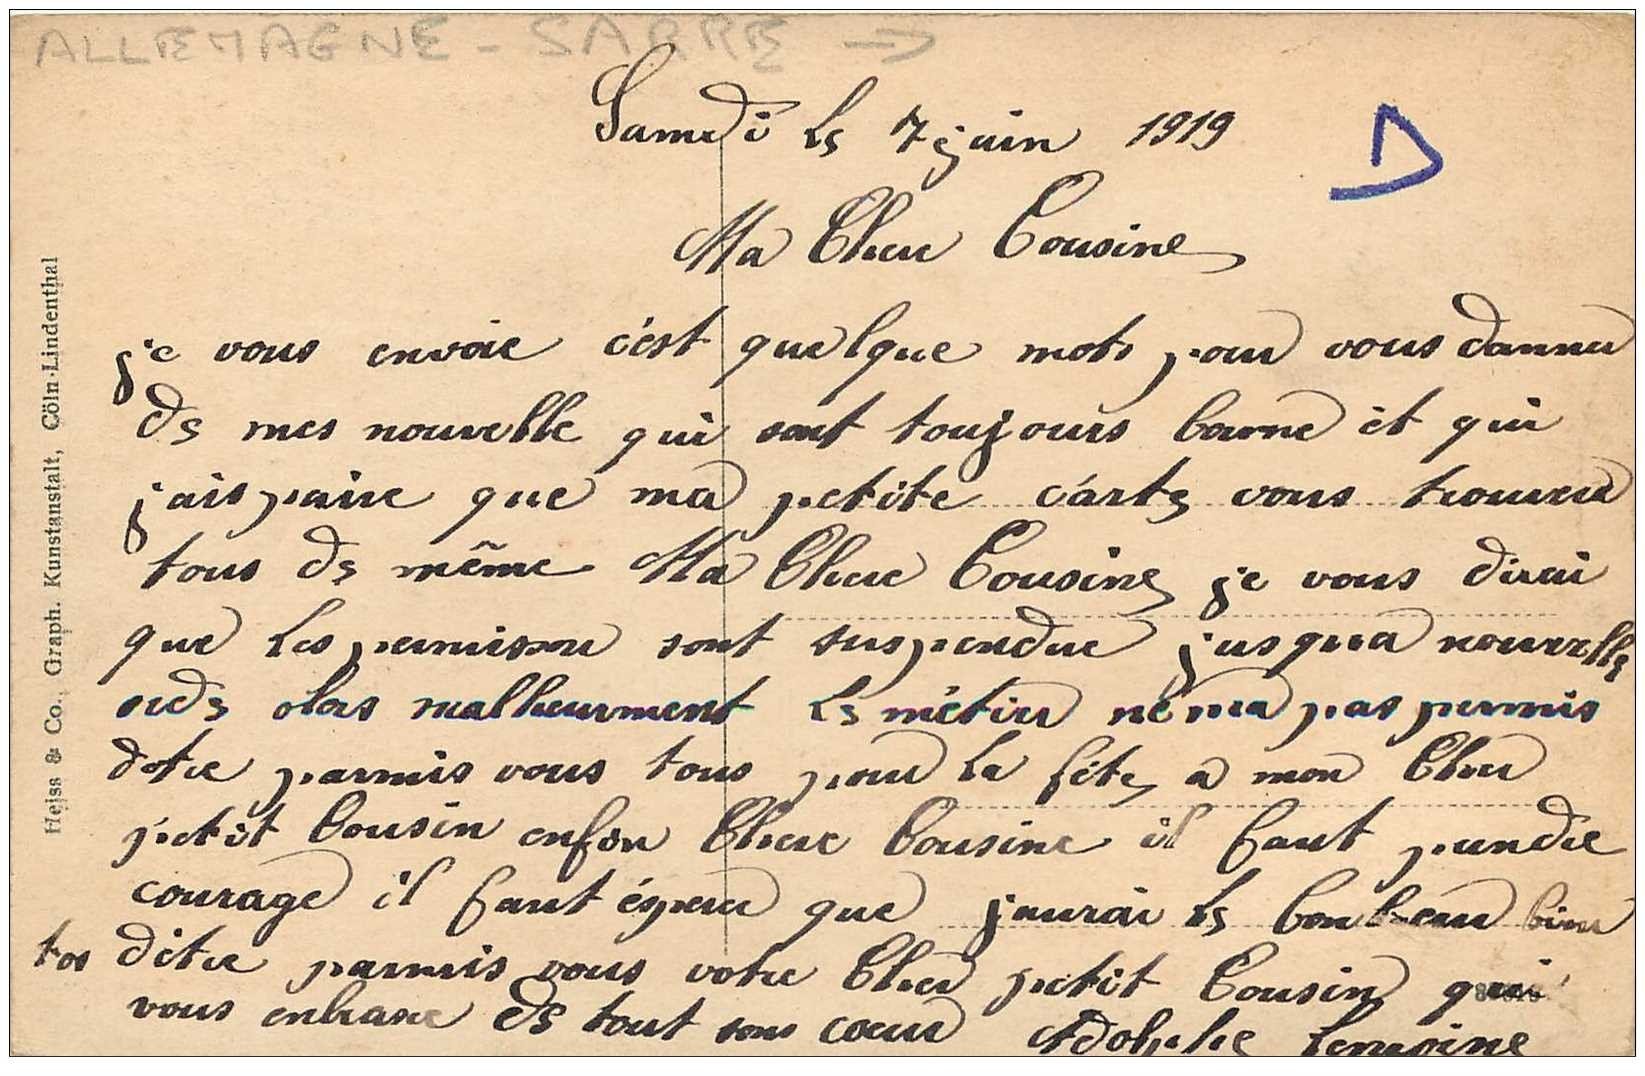 ALLEMAGNE - SARRE →
Samedi le 7 juin 1919
D
Ma Cher Cousine
je vous envoie c'est quelque mots pour vous danner
de mes nouvelle qui sont toujours bonne et qui
jaispaire que ma petite carte vous trouvera
tous de même Ma Chere Cousine je vous dirai
que les permission sont suspendue jusqua nouvelle
malheurment le métier ne ma pas permis
dètre parmis vous tous pour la féte a mon Cher
petit Cousin enfin Chere Cousine il faut prendre
courage il faut ésperer que jaurai le bonheur bien
tos dètre parmis vous votre Cher petit Cousin qui
vous enbrasse de tout sons cœur Adolphe Lemoine
Heiss & Co., Graph. Kunstanstalt, Cöln-Lindenthal